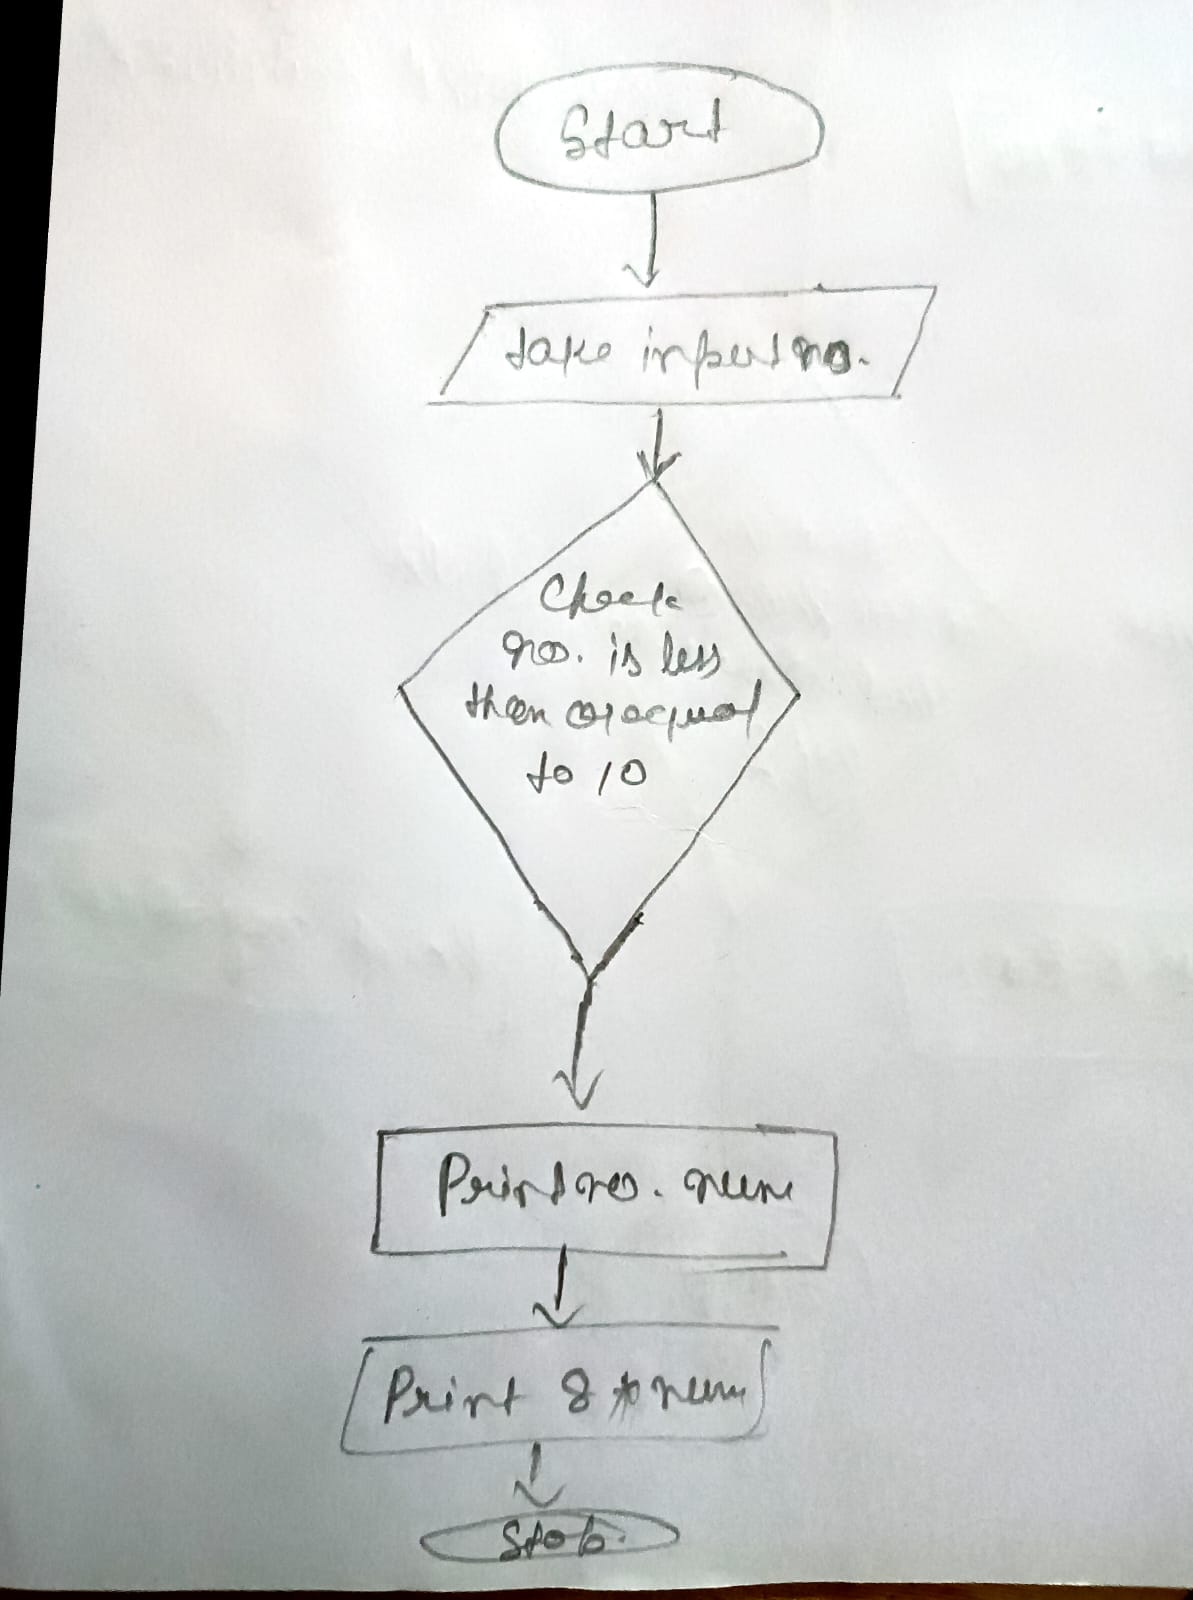 Start
take input no.
Check
no. is less
then or equal
to 10
Print no. num
Print 8 * num
Stop.